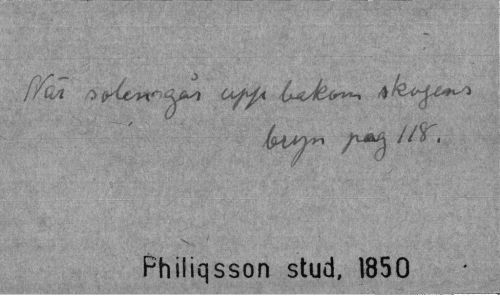 När solen går upp bakom skogens
bryn pag 118.
Philiqsson stud, 1850